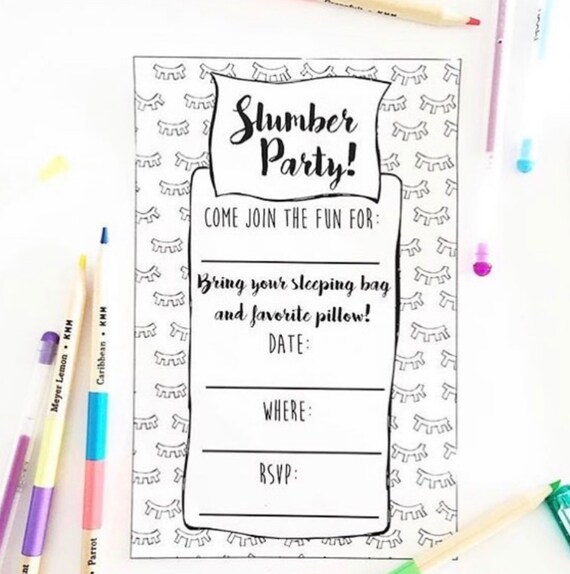 Slumber
Party!
COME JOIN THE FUN FOR:
Bring your sleeping bag
and favorite pillow!
DATE:
WHERE:
RSVP:
Meyer Lemon • KMM
Caribbean • KMM
Parrot